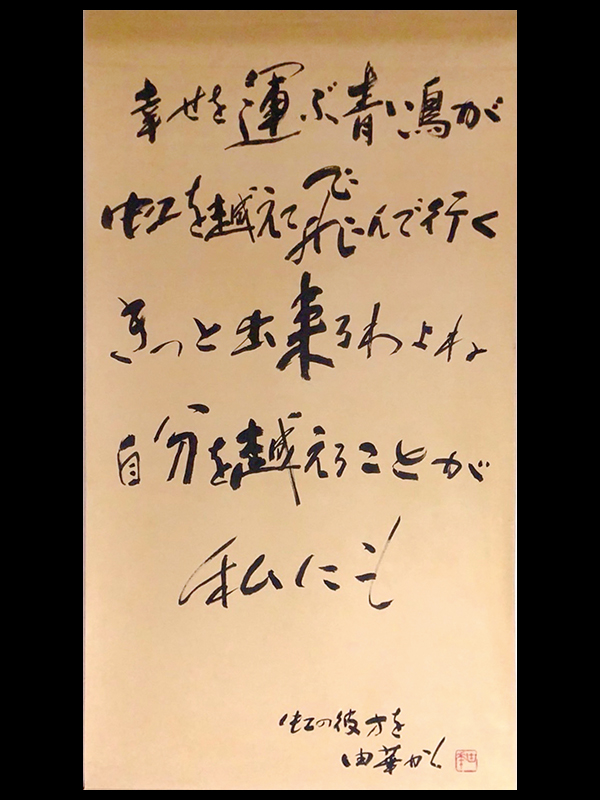 幸せを運ぶ青い鳥が
虹を越えて飛んで行く
きっと出来るわよね
自分を越えることが
私にも
虹の彼方を
由華かく